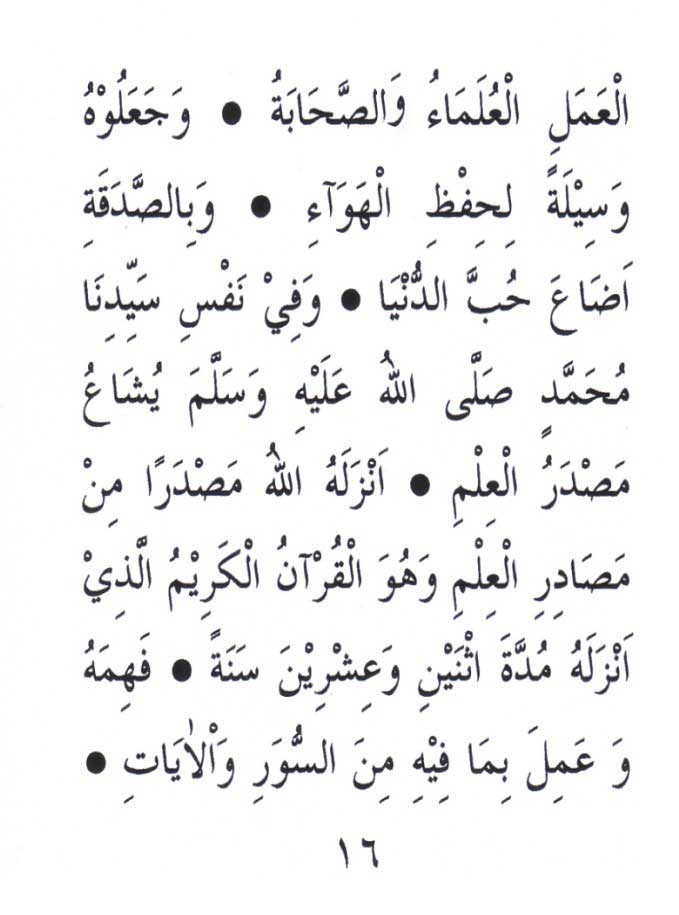 الْعَمَلِ الْعُلَمَاءُ وَالصَّحَابَةُ ● وَجَعَلُوْهُ
وَسِيْلَةً لِحِفْظِ الْهَوَآءِ ● وَبِالصَّدَقَةِ
اَضَاعَ حُبَّ الدُّنْيَا ● وَفِيْ نَفْسِ سَيِّدِنَا
مُحَمَّدٍ صَلَّى اللهُ عَلَيْهِ وَسَلَّمَ يُشَاعُ
مَصْدَرُ الْعِلْمِ ● اَنْزَلَهُ اللهُ مَصْدَرًا مِنْ
مَصَادِرِ الْعِلْمِ وَهُوَ الْقُرْآنُ الْكَرِيْمُ الَّذِيْ
اَنْزَلَهُ مُدَّةَ اثْنَيْنِ وَعِشْرِيْنَ سَنَةً ● فَهِمَهُ
وَ عَمِلَ بِمَا فِيْهِ مِنَ السُّوَرِ وَاْلاٰيَاتِ ●
١٦